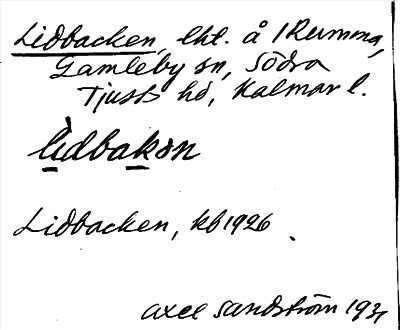 Lidbacken, lht. å 1 Rumma,
Gamleby sn, Södra
Tjusts hd, Kalmar l.
lìdbakən
Lidbacken, kb 1926.
Axel Sandström 193